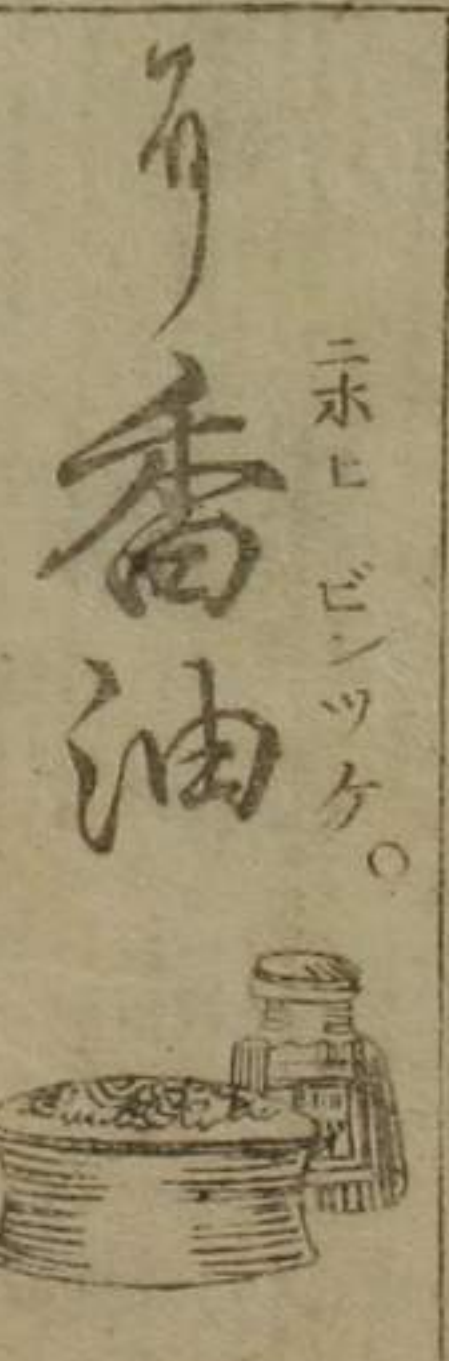 ニホヒ ビンツケ○
香油